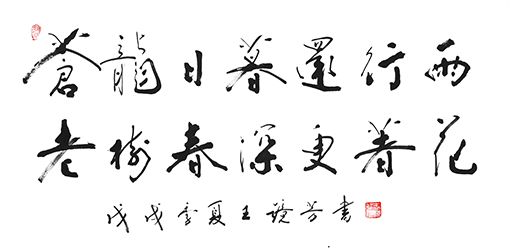 蒼龍日暮還行雨
老樹春深更着花
戊戌季夏王鏡芳書